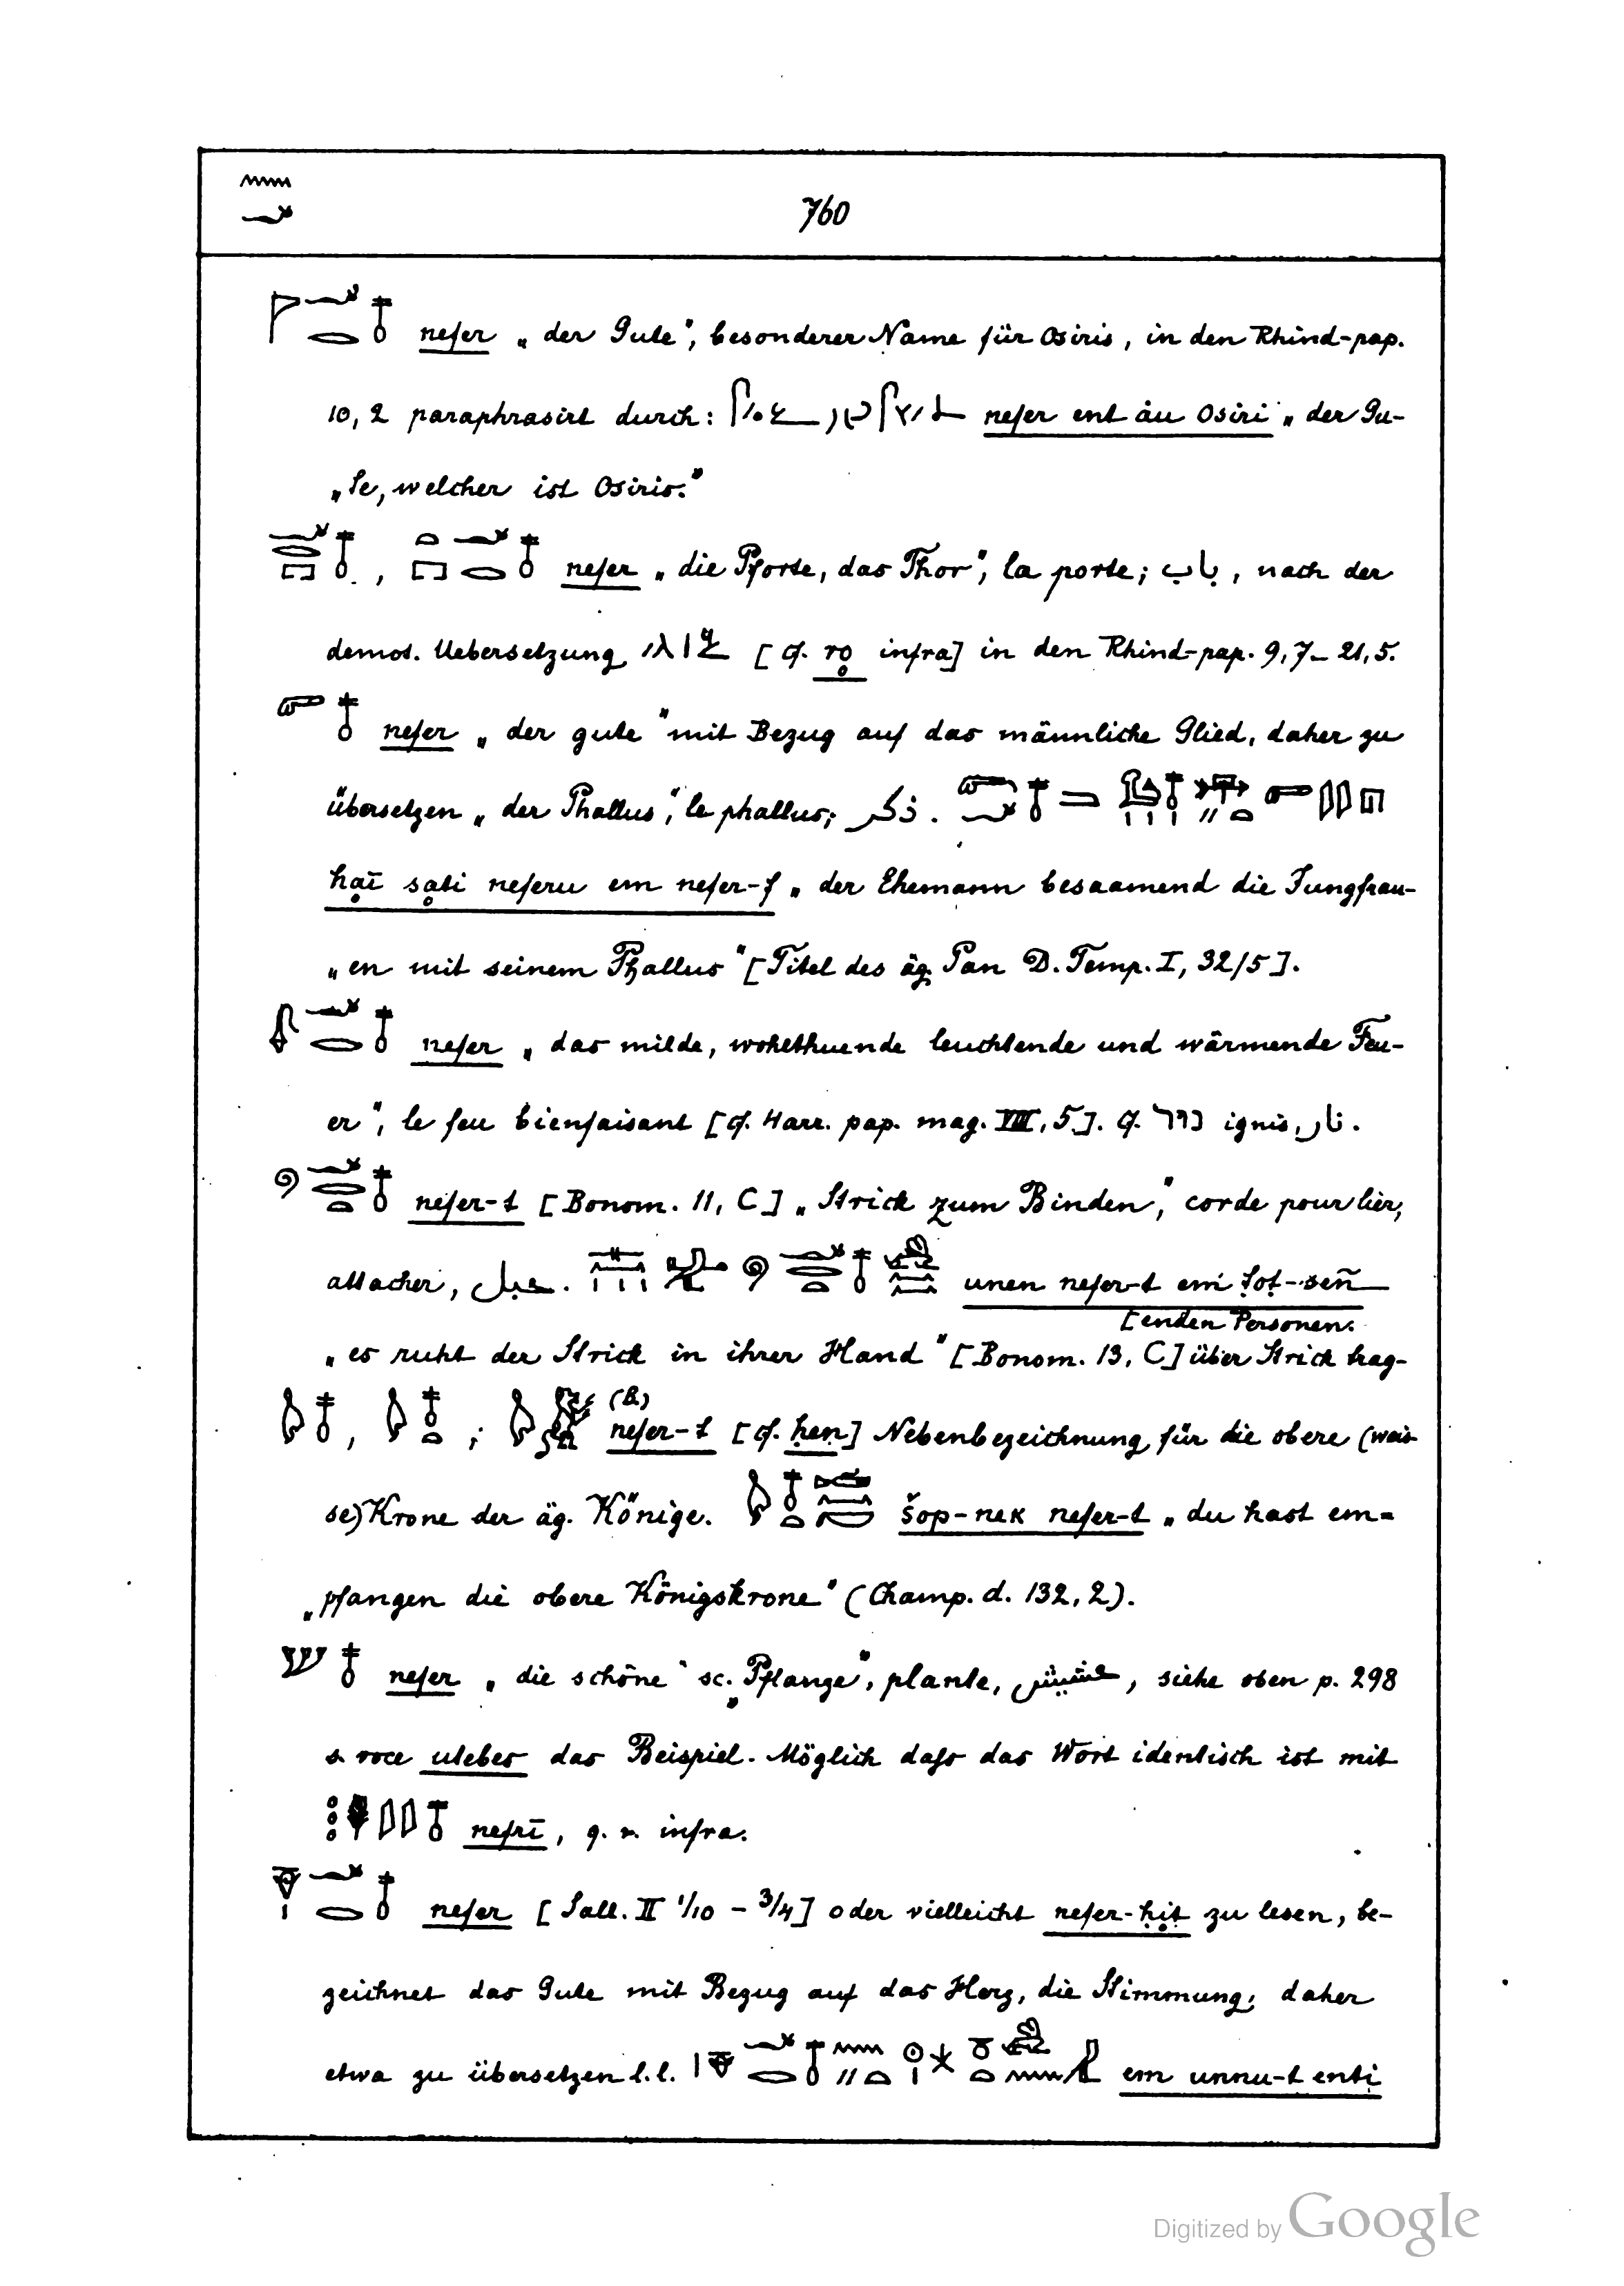 760
nefer „der Gute“, besonderer Name für Osiris, in den Rhind-pap.
10,2 paraphrasirt durch: nefer ent âu Osiri „der Gu-
„te, welcher ist Osiris.“
, nefer „die Pforte, das Thor“, la porte; باب, nach der
demot. Uebersetzung [cf. ro infra] in den Rhind-pap. 9,7 – 21,5.
nefer „der gute“ mit Bezug auf das männliche Glied, daher zu
übersetzen „der Phallus“, le phallus; ذكر.
ḥaī sati neferu em nefer-f „der Ehemann besaamend die Jungfrau-
„en mit seinem Phallus“ [Titel des äg. Pan D. Temp. I, 32/5].
nefer „das milde, wohlthuende leuchtende und wärmende Feu-
er“, le feu bienfaisant [cf. Harr. pap. mag. VIII, 5]. Cf. נור ignis, نار.
nefer-t [Bonom. 11, C] „Strick zum Binden“, corde pour lier,
attacher, حبل. unen nefer-t em ṭot-señ
[enden Personen.
„es ruht der Strick in ihrer Hand“ [Bonom. 13, C] über Strick trag-
, ; (B.) nefer-t [cf. ḥen] Nebenbezeichnung für die obere (weis-
se) Krone der äg. Könige. šop-nek nefer-t „du hast em=
„pfangen die obere Königskrone“ (Champ. d. 132, 2).
nefer „die schöne“ sc. „Pflanze“, plante, حشيش, siehe oben p. 298
s. voce uteber das Beispiel. Möglich dafs das Wort identisch ist mit
nefrī, q. v. infra.
nefer [Sall. II 1/10 – 3/4] oder vielleicht nefer-ḥit zu lesen, be-
zeichnet das Gute mit Bezug auf das Herz, die Stimmung, daher
etwa zu übersetzen l.l. em unnu-t enti
Digitized by Google